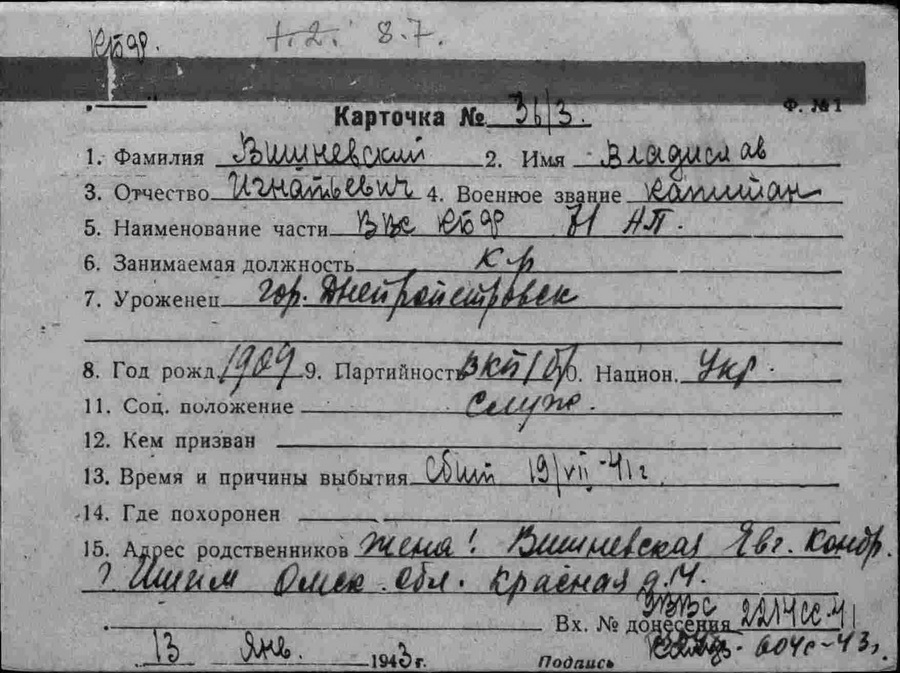 КБФ. 1.2. 8.7.
Ф. №1
Карточка № 36/3.
1. Фамилия Вишневский 2. Имя Владислав
3. Отчество Игнатьевич 4. Военное звание капитан
5. Наименование части ВВС КБФ 71 АП.
6. Занимаемая должность к-р
7. Уроженец гор. Днепропетровск
8. Год рожд. 1909 9. Партийность ВКП(б) 10. Национ. Укр.
11. Соц. положение служ.
12. Кем призван
13. Время и причины выбытия Сбит 19/VII-41 г.
14. Где похоронен
15. Адрес родственников жена: Вишневская Явг. Кондр.
г. Ишим Омск. обл. Красная д. 14.
ВВС
Вх. № донесения 2214сс-41
13 Янв. 1943 г. Подпись 604с-43 г.